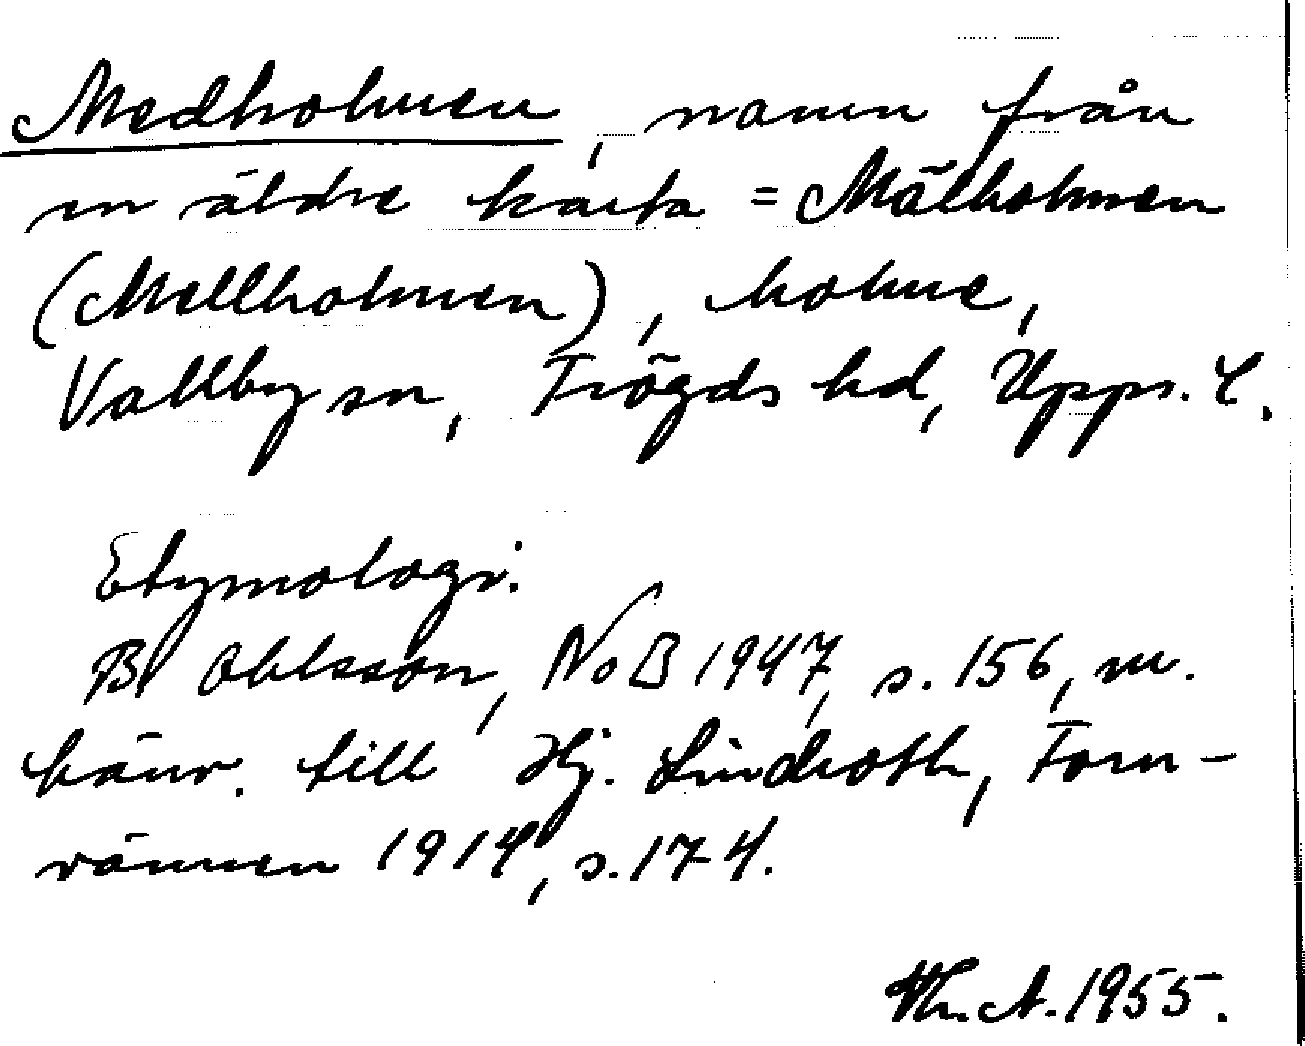 Medholmen, namn från
en äldre karta = Mälholmen
(Mellholmen), holme,
Vallby sn, Trögds hd, Upps. l.
Etymologi:
B Ohlsson, NoB 1947, s. 156, m.
hänv. till Hj. Lindroth, Forn-
vännen 1914, s. 174.
Th. A. 1955.